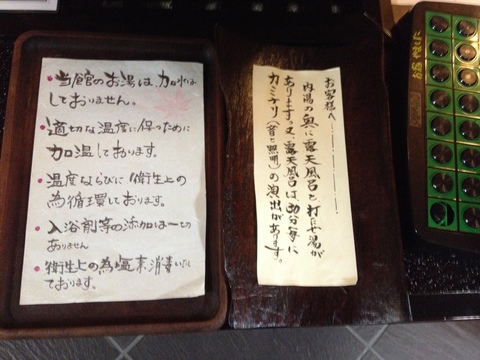 ・当館のお湯は、加水は
しておりません。
・適切な温度に保つために
加温しております。
・温度ならびに衛生上の
為循環しております。
・入浴剤等の添加は一切
ありません
・衛生上の為塩素消毒いたし
ております。
お客様へ
内湯の奥に露天風呂と打たせ湯が
あります。又、露天風呂は、30分毎に
カミナリ(音と照明)の演出があります。